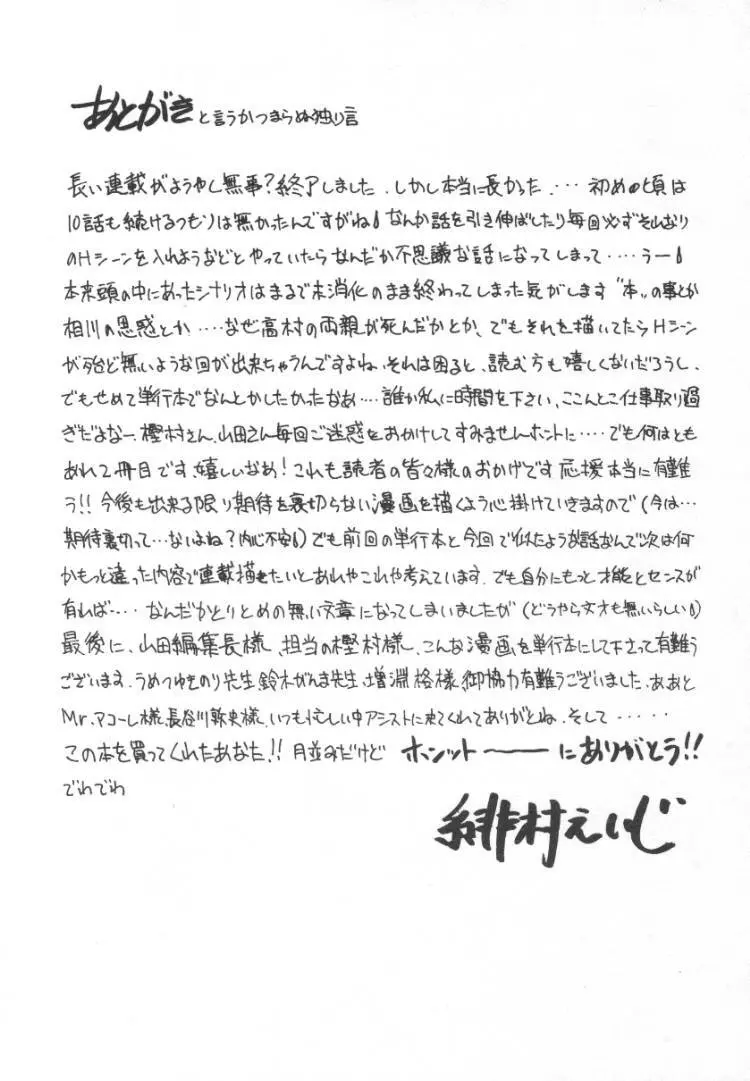 あとがきと言うかつまらぬ独り言
長い連載がようやく無事?終了しました.しかし本当に長かった.… 初めの頃は
10話も続けるつもりは無かったんですがねなんか話を引き伸ばしたり毎回必ずそれなり
のHシーンを入れようなどとやっていたらなんだか不思議な話になってしまって‥‥うー
本来頭の中にあったシナリオはまるで未消化のまま終わってしまった気がします“本〟の事とか
相川の思惑とか‥‥なぜ高村の両親が死んだかとか、でもそれを描いてたらHシーン
が殆ど無いような回が出来ちゃうんですよね.それは困ると、読む方も嬉しくないだろうし、
でもせめて単行本でなんとかしたかったなあ‥‥誰か私に時間を下さい、ここんとこ仕事取り過
ぎだよなー.樫村さん、山田さん毎回ご迷惑をおかけしてすみませんホントに‥‥でも何はとも
あれ2冊目です、嬉しいなあ!これも読者の皆々様のおかげです応援本当に有難
う!!今後も出来る限り期待を裏切らない漫画を描くよう心掛けていきますので(今は…
期待裏切って…ないよね?内心不安)でも前回の単行本と今回で似たような話なんで次は何
かもっと違った内容で連載描きたいとあれやこれや考えています.でも自分にもっと才能とセンスが
有れば‥‥ なんだかとりとめの無い文章になってしまいましたが(どうやら文才も無いらしい)
最後に、山田編集長様、担当の樫村様、こんな漫画を単行本にして下さって有難う
ございます.うめつゆきのり先生鈴木がんま先生、増淵格様、御協力有難うございました.ああと
Mr.アコーレ様、長谷川 様、いつも忙しい中アシストに来てくれてありがとね.そして‥‥
この本を買ってくれたあなた!!月並みだけど ホンットーーーにありがとう!!
でわでわ
緋村えいじ